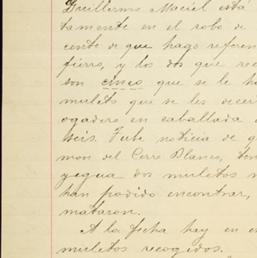 Guillermo Maciel está
tamente en el robo de
cente de que hago referen
fierro, y lo dos que rec
son cinco que se le h
mulets que se les decer
ogadero en caballada
seis. Tube noticia de q
mon del Cerro Blanco, ten
yegua dos muletos n
han podido encontrar,
mataron.
A la fecha hay en e
muletos recogidos.